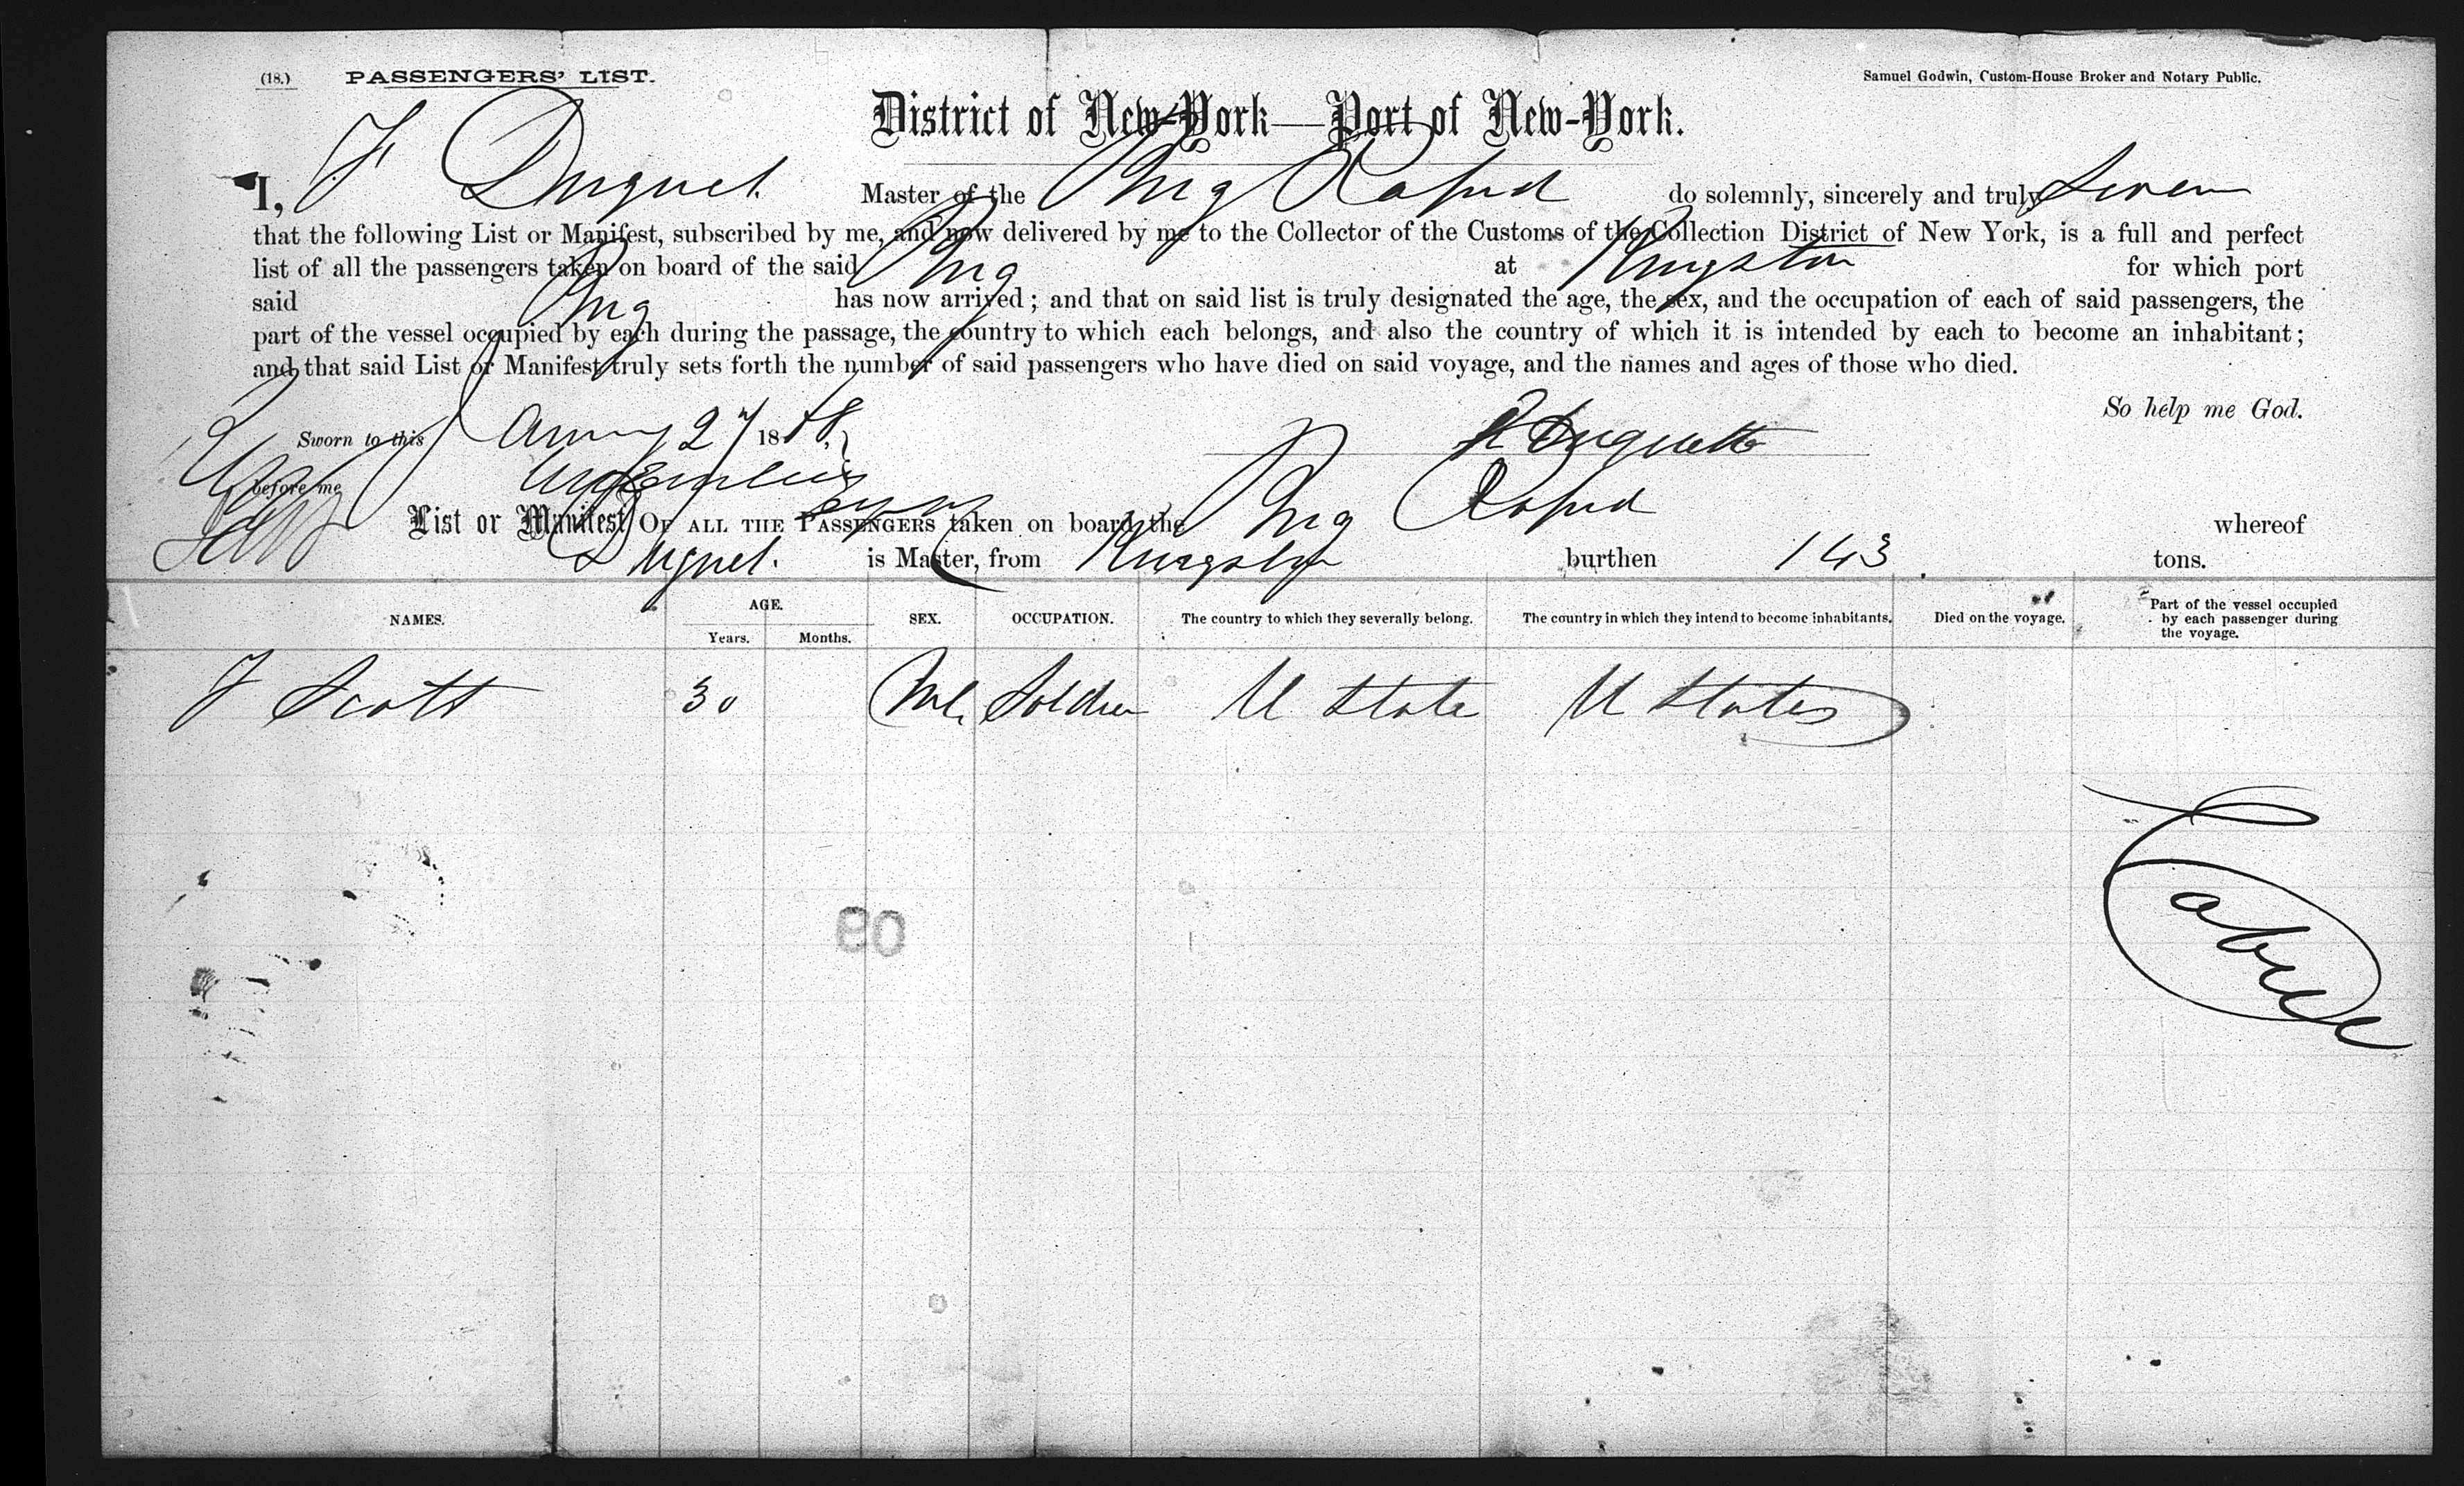 (18.) PASSENGERS' LIST. Samuel Godwin, Custom-House Broker and Notary Public.
District of New-York—Port of New-York.
I, F Duquet Master of the Brig Rapid do solemnly, sincerely and truly Swear
that the following List or Manifest, subscribed by me, and now delivered by me to the Collector of the Customs of the Collection District of New York, is a full and perfect
list of all the passengers taken on board of the said Brig at Kingston for which port
said Brig has now arrived; and that on said list is truly designated the age, the sex, and the occupation of each of said passengers, the
part of the vessel occupied by each during the passage, the country to which each belongs, and also the country of which it is intended by each to become an inhabitant;
and that said List or Manifest truly sets forth the number of said passengers who have died on said voyage, and the names and ages of those who died.
So help me God.
Sworn to this 27 18 Duquette
before me
List or Manifest OF ALL THE PASSENGERS taken on board the Brig Rapid whereof
Duquet. is Master, from Kingston burthen 143 tons.
NAMES. AGE. Years. Months. SEX. OCCUPATION. The country to which they severally belong. The country in which they intend to become inhabitants. Died on the voyage. Part of the vessel occupied by each passenger during the voyage.
Scott 30 Mle Soldier U State U States
Cabin